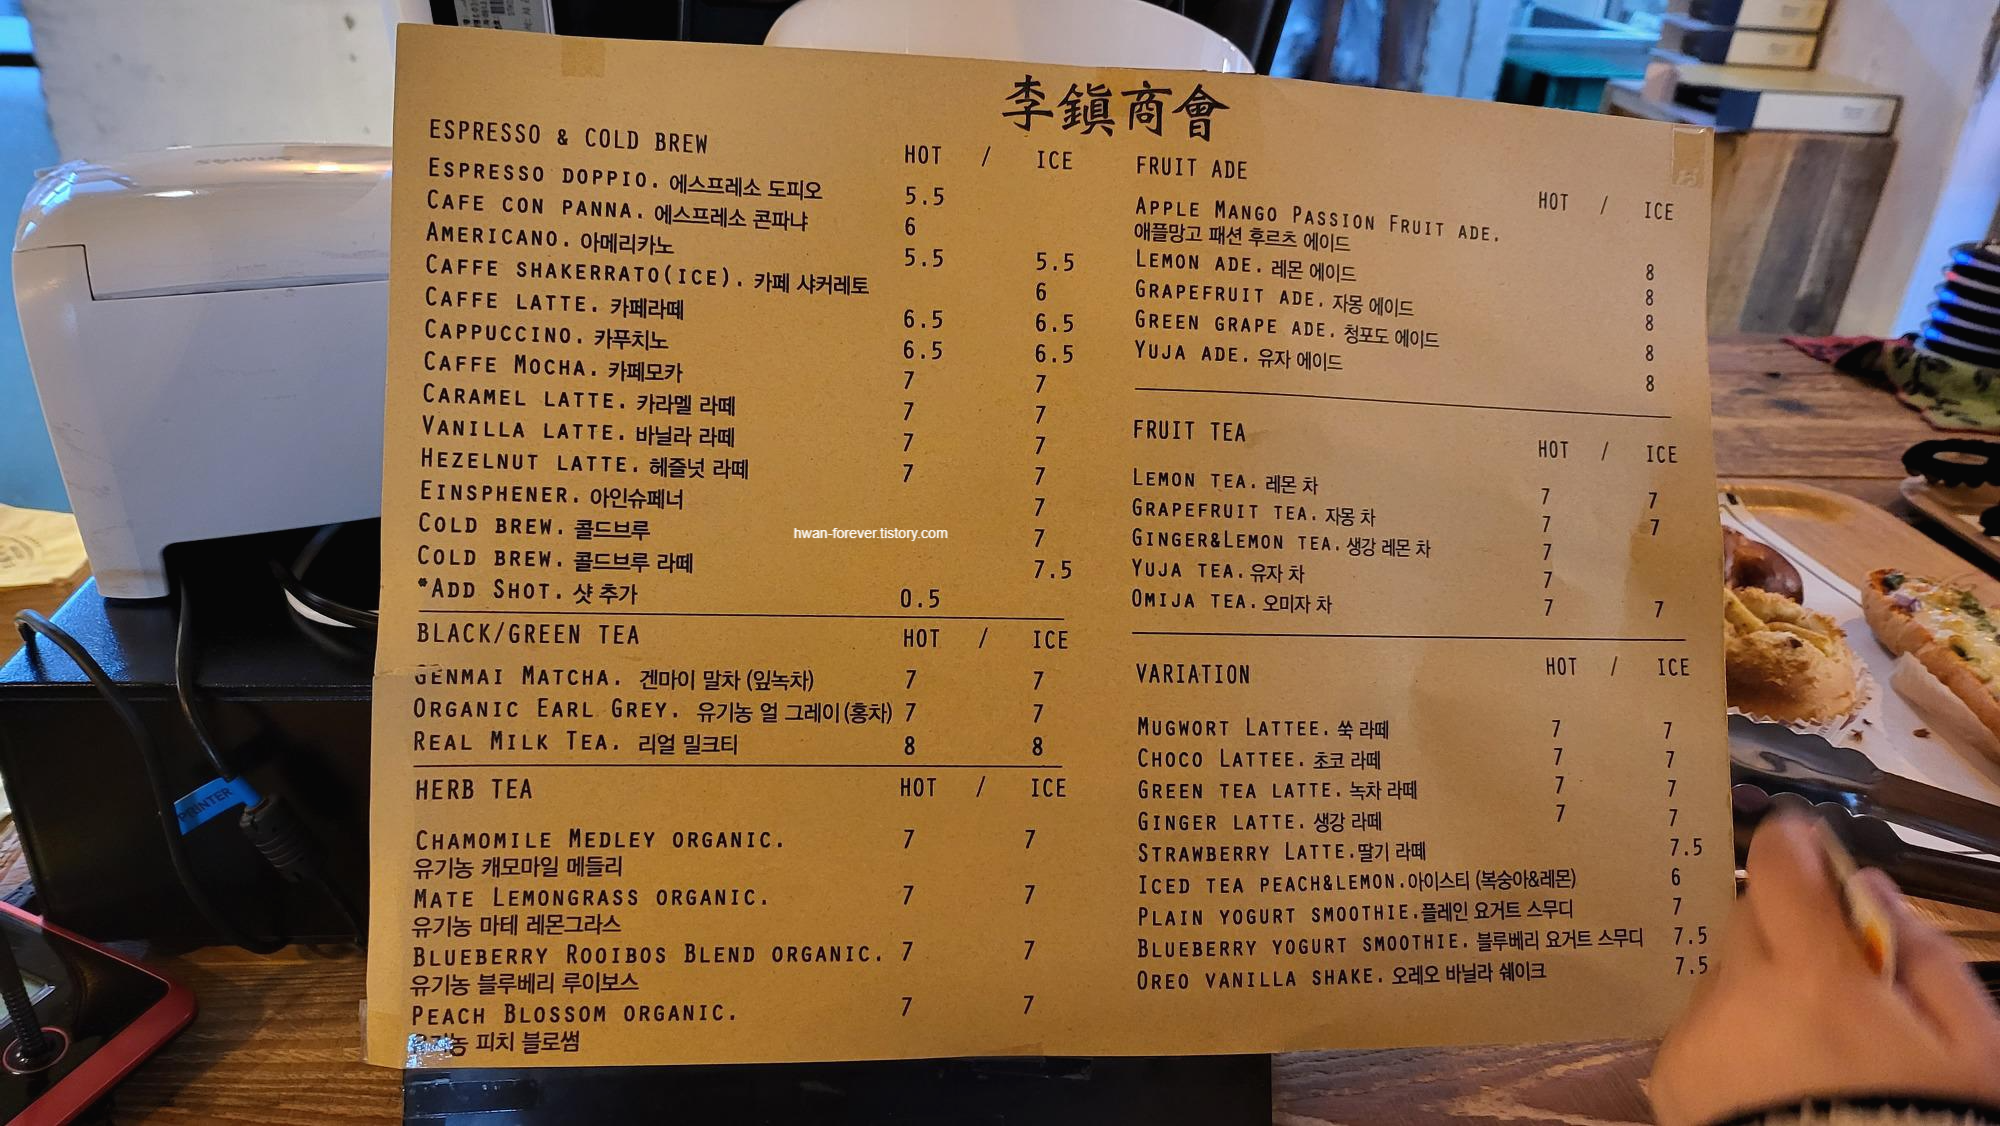 李鎭商會
ESPRESSO & COLD BREW
HOT / ICE
ESPRESSO DOPPIO. 에스프레소 도피오 5.5
CAFE CON PANNA. 에스프레소 콘파냐 6
AMERICANO. 아메리카노 5.5 5.5
CAFFE SHAKERRATO(ICE). 카페 샤커레토 6
CAFFE LATTE. 카페라떼 6.5 6.5
CAPPUCCINO. 카푸치노 6.5 6.5
CAFFE MOCHA. 카페모카 7 7
CARAMEL LATTE. 카라멜 라떼 7 7
VANILLA LATTE. 바닐라 라떼 7 7
HEZELNUT LATTE. 헤즐넛 라떼 7 7
EINSPHENER. 아인슈페너 7
COLD BREW. 콜드브루 7
COLD BREW. 콜드브루 라떼 7.5
*ADD SHOT. 샷 추가 0.5
BLACK/GREEN TEA HOT / ICE
GENMAI MATCHA. 겐마이 말차 (잎녹차) 7 7
ORGANIC EARL GREY. 유기농 얼 그레이 (홍차) 7 7
REAL MILK TEA. 리얼 밀크티 8 8
HERB TEA HOT / ICE
CHAMOMILE MEDLEY ORGANIC. 7 7
유기농 캐모마일 메들리
MATE LEMONGRASS ORGANIC. 7 7
유기농 마테 레몬그라스
BLUEBERRY ROOIBOS BLEND ORGANIC. 7 7
유기농 블루베리 루이보스
PEACH BLOSSOM ORGANIC. 7 7
피치 블로썸
FRUIT ADE
HOT / ICE
APPLE MANGO PASSION FRUIT ADE.
애플망고 패션 후르츠 에이드 8
LEMON ADE. 레몬 에이드 8
GRAPEFRUIT ADE. 자몽 에이드 8
GREEN GRAPE ADE. 청포도 에이드 8
YUJA ADE. 유자 에이드 8
FRUIT TEA
HOT / ICE
LEMON TEA. 레몬 차 7 7
GRAPEFRUIT TEA. 자몽 차 7 7
GINGER&LEMON TEA. 생강 레몬 차 7
YUJA TEA. 유자 차 7
OMIJA TEA. 오미자 차 7 7
VARIATION HOT / ICE
MUGWORT LATTEE. 쑥 라떼 7 7
CHOCO LATTEE. 초코 라떼 7 7
GREEN TEA LATTE. 녹차 라떼 7 7
GINGER LATTE. 생강 라떼 7 7
STRAWBERRY LATTE. 딸기 라떼 7.5
ICED TEA PEACH&LEMON. 아이스티 (복숭아&레몬) 6
PLAIN YOGURT SMOOTHIE. 플레인 요거트 스무디 7
BLUEBERRY YOGURT SMOOTHIE. 블루베리 요거트 스무디 7.5
OREO VANILLA SHAKE. 오레오 바닐라 쉐이크 7.5
hwan-forever.tistory.com
PRINTER